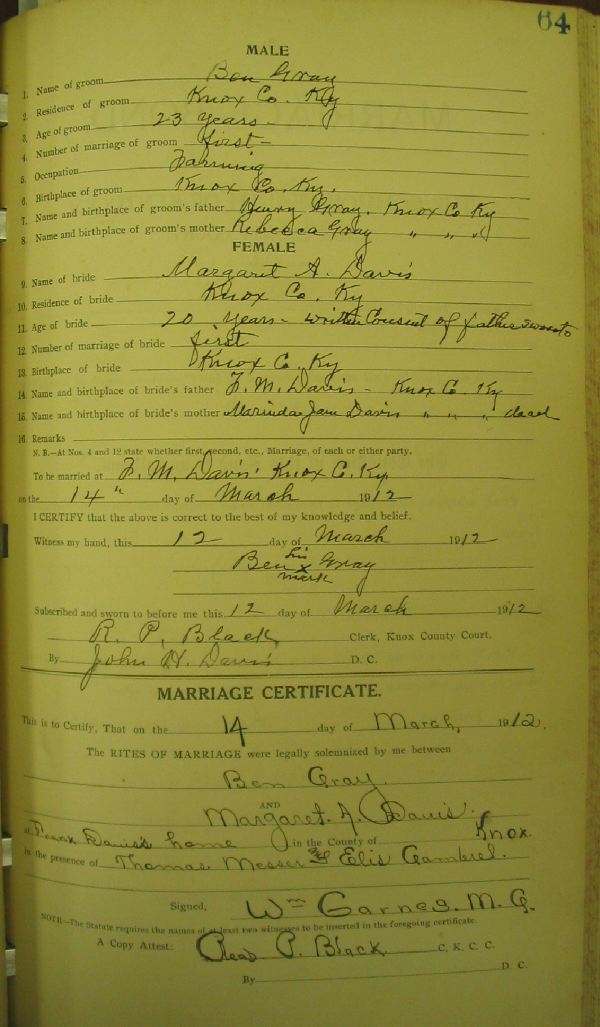 64
MALE
1. Name of groom Ben Gray
2. Residence of groom Knox Co. Ky
3. Age of groom 23 years
4. Number of marriage of groom first
5. Occupation Farming
6. Birthplace of groom Knox Co. Ky.
7. Name and birthplace of groom's father Henry Gray. Knox Co Ky
8. Name and birthplace of groom's mother Rebecca Gray " " "
FEMALE
9. Name of bride Margaret A. Davis
10. Residence of bride Knox Co. Ky
11. Age of bride 20 years - written Consent of father sworn to
12. Number of marriage of bride first
13. Birthplace of bride Knox Co. Ky
14. Name and birthplace of bride's father F. M. Davis - Knox Co. Ky
15. Name and birthplace of bride's mother Marinda Jane Davis " " " dead
16. Remarks
N. B.—At Nos. 4 and 12 state whether first, second, etc., Marriage, of each or either party.
To be married at F. M. Davis' Knox C. Ky.
on the 14" day of March 1912
I CERTIFY that the above is correct to the best of my knowledge and belief.
Witness my hand, this 12 day of March 1912
his
Ben x Gray
mark
Subscribed and sworn to before me this 12 day of March 1912
R. P. Black Clerk, Knox County Court.
By John H. Davis D. C.
MARRIAGE CERTIFICATE.
This is to Certify, That on the 14 day of March, 1912.
The RITES OF MARRIAGE were legally solemnized by me between
Ben Gray
AND
Margaret. A. Davis.
at Frank Davis's home in the County of Knox.
in the presence of Thomas Messer & Elis Gambrel.
Signed, Wm Garnes. M. G.
NOTE—The Statute requires the names of at least two witnesses to be inserted in the foregoing certificate.
A Copy Attest: P. Black C. K. C. C.
By D. C.